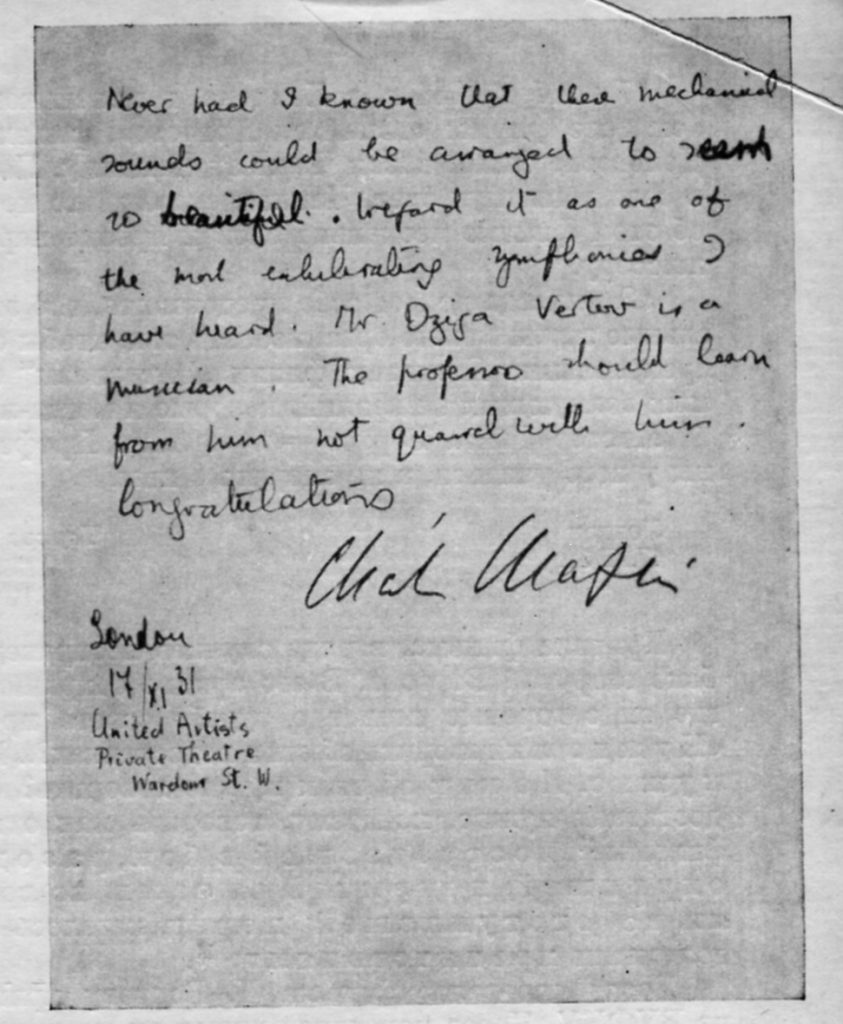 Never had I known that these mechanical
sounds could be arranged to seem
so beautiful. I regard it as one of
the most exhilarating symphonies I
have heard. Mr. Dziga Vertov is a
musician. The professors should learn
from him not quarrel with him.
Congratulations
Charlie Chaplin
London
17/XI 31
United Artists
Private Theatre
Wardour St. W.